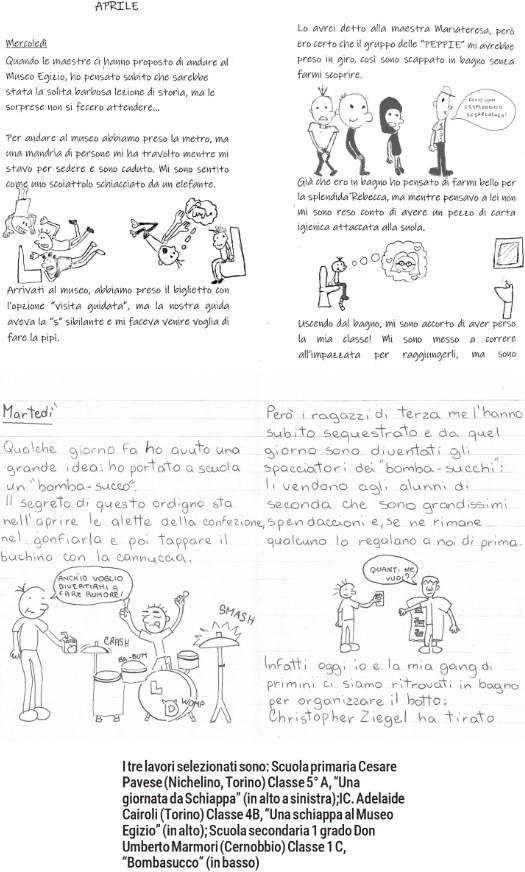 APRILE
Mercoledì
Quando le maestre ci hanno proposto di andare al
Museo Egizio, ho pensato subito che sarebbe
stata la solita barbosa lezione di storia, ma le
sorprese non si fecero attendere...
Per andare al museo abbiamo preso la metro, ma
una mandria di persone mi ha travolto mentre mi
stavo per sedere e sono caduto. Mi sono sentito
come uno scoiattolo schiacciato da un elefante.
Arrivati al museo, abbiamo preso il biglietto con
l'opzione "visita guidata", ma la nostra guida
aveva la "s" sibilante e mi faceva venire voglia di
fare la pipì.
Lo avrei detto alla maestra Mariateresa, però
ero certo che il gruppo delle "PEPPIE" mi avrebbe
preso in giro, così sono scappato in bagno senza
farmi scoprire.
ECCO UNO
SSSPLENDIDO
Già che ero in bagno ho pensato di farmi bello per
la splendida Rebecca, ma mentre pensavo a lei non
mi sono reso conto di avere un pezzo di carta
igienica attaccata alla suola.
Uscendo dal bagno, mi sono accorto di aver perso
la mia classe! Mi sono messo a correre
all'impazzata per raggiungerli, ma sono
Martedì
Qualche giorno fa ho avuto una
grande idea: ho portato a scuola
un "bomba-succo".
Il segreto di questo ordigno sta
nell'aprire le alette della confezione,
nel gonfiarla e poi tappare il
buchino con la cannuccia.
ANCH'IO VOGLIO
DIVERTIRMI A
FARE RUMORE!
CRASH
BA-BUM
SMASH
L
D
WOMP
Però i ragazzi di terza me l'hanno
subito sequestrato e da quel
giorno sono diventati gli
spacciatori dei "bomba-succhi":
li vendono agli alunni di
seconda che sono grandissimi
spendaccioni e, se ne rimane
qualcuno lo regalano a noi di prima.
QUANTI NE
VUOI?
Infatti oggi io e la mia gang di
primini ci siamo ritrovati in bagno
per organizzare il botto:
Christopher Ziegel ha tirato
I tre lavori selezionati sono: Scuola primaria Cesare
Pavese (Nichelino, Torino) Classe 5° A, "Una
giornata da Schiappa" (in alto a sinistra);IC. Adelaide
Cairoli (Torino) Classe 4B, "Una schiappa al Museo
Egizio" (in alto); Scuola secondaria 1 grado Don
Umberto Marmori (Cernobbio) Classe 1 C,
"Bombasucco" (in basso)